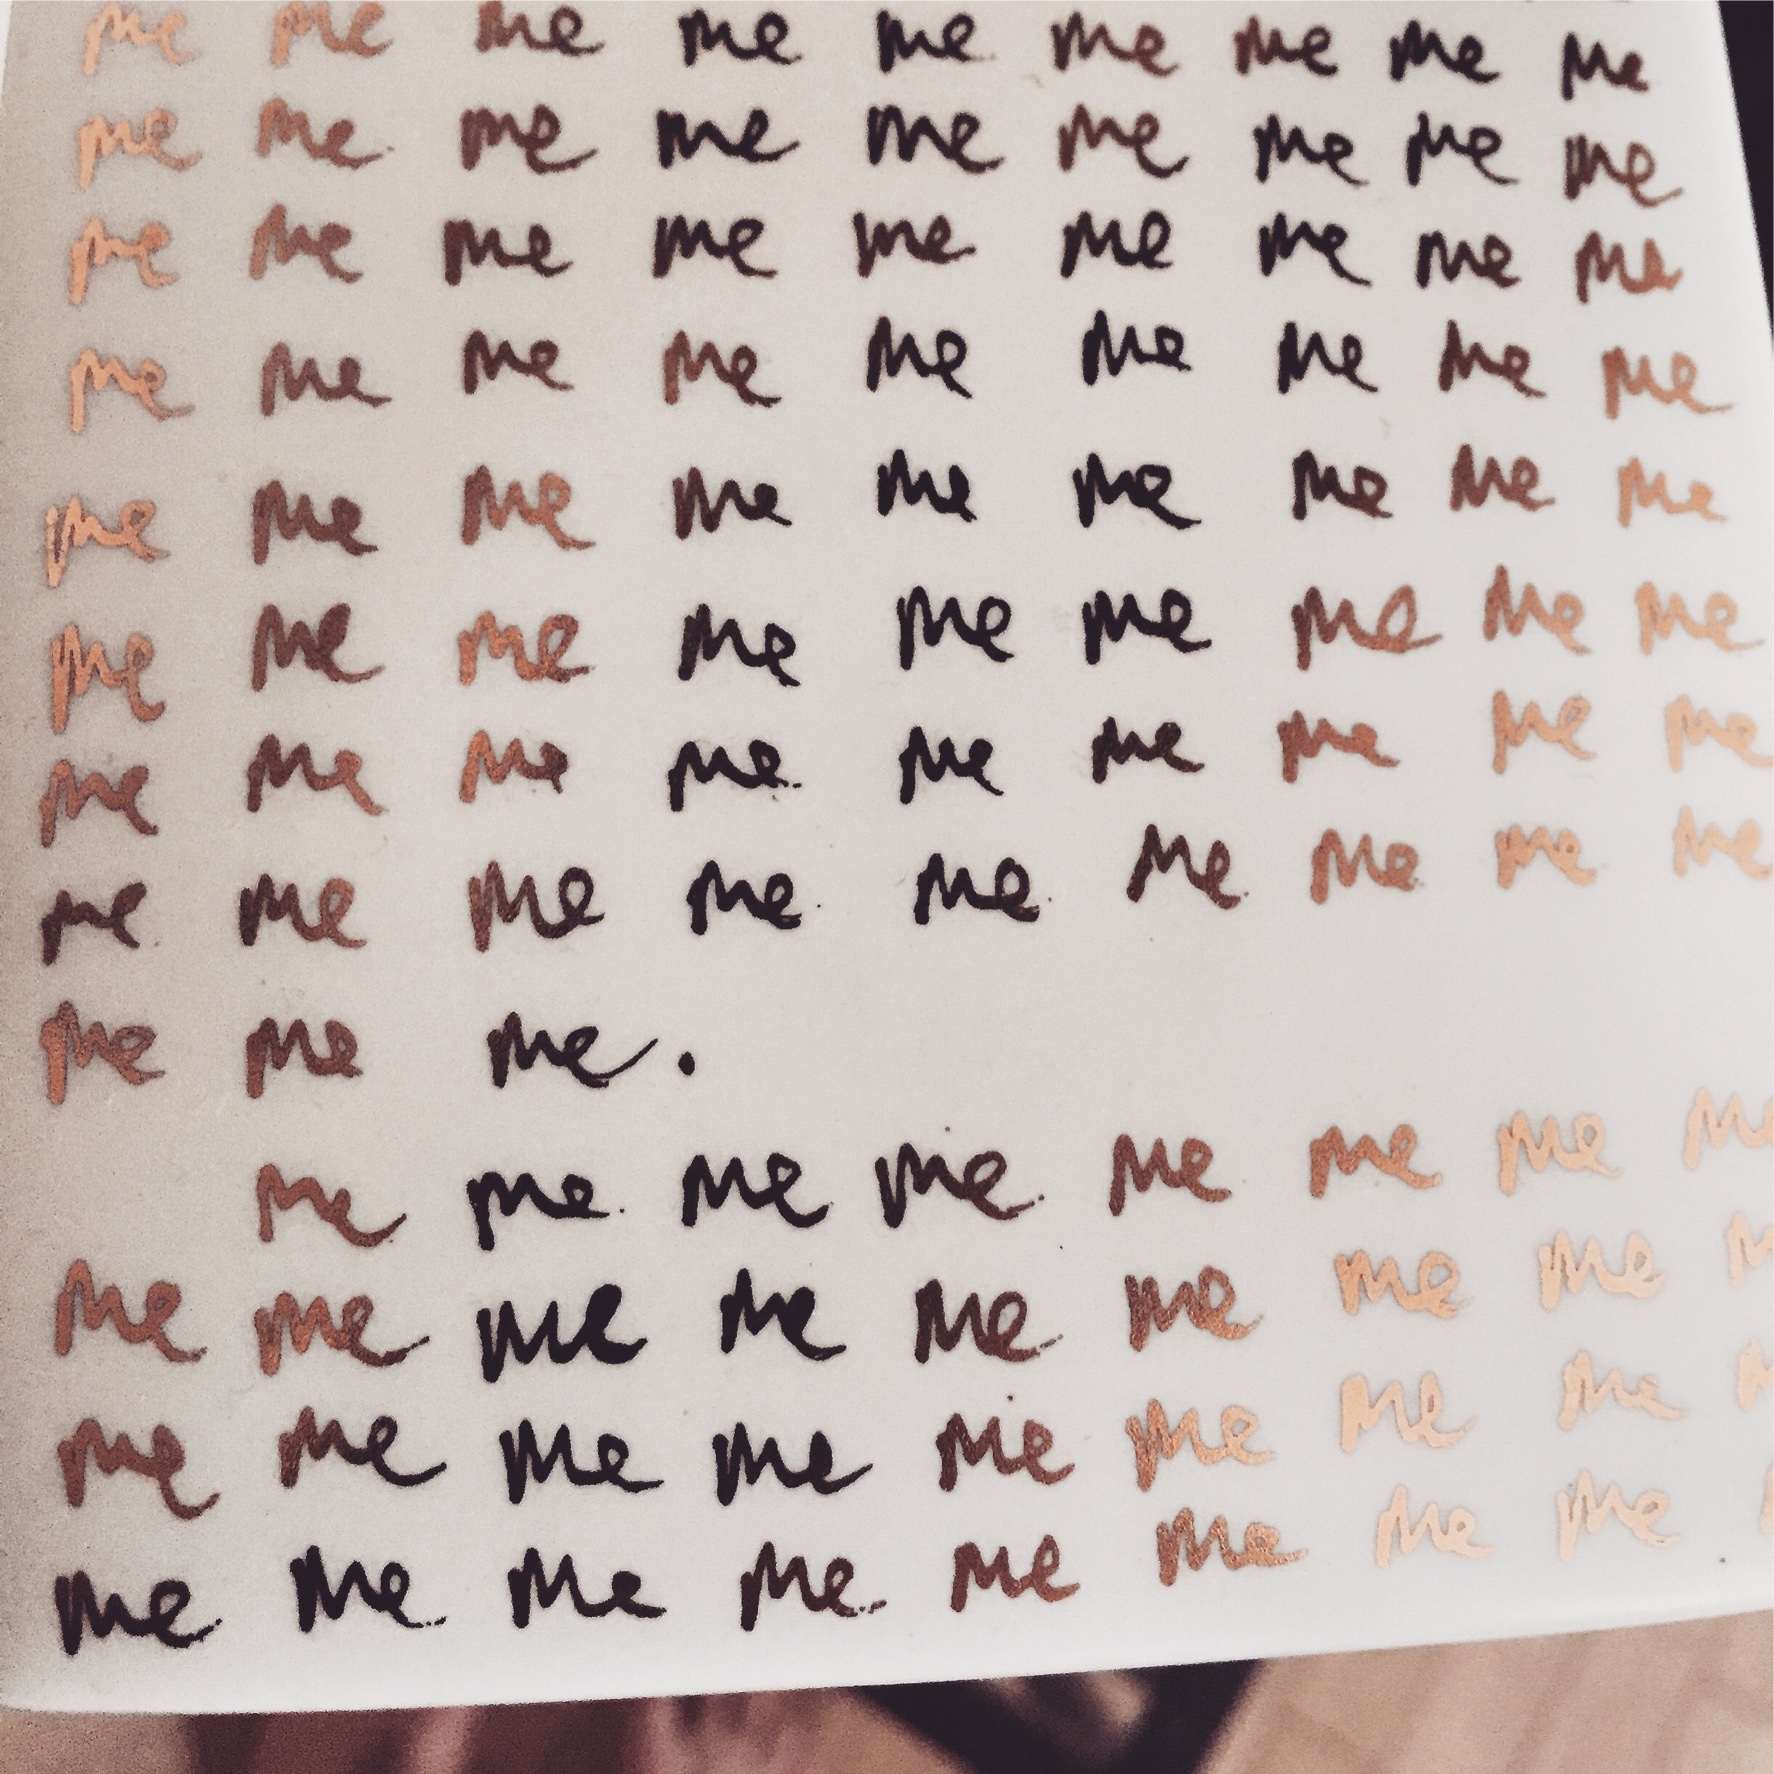 me me me me me me me me me
me me me me me me me me me
me me me me me me me me me
me me me me me me me me me
me me me me me me me me me
me me me me me me me me me
me me me me me me me me me
me me me me me me me me me
me me me.
me me me me me me me me
me me me me me me me me
me me me me me me me me
me me me me me me me me